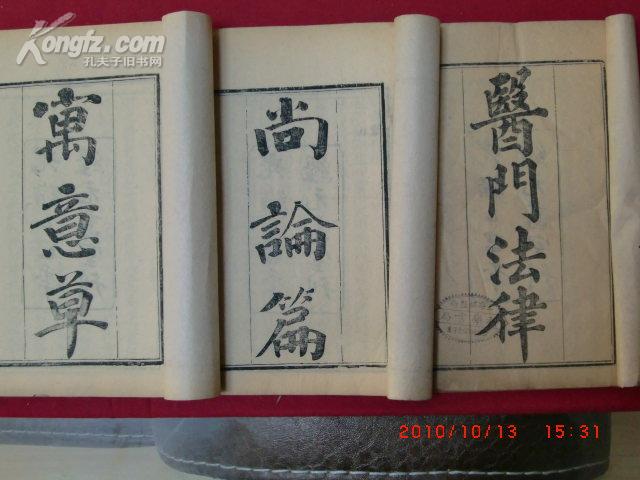 Kongfz.com
孔夫子旧书网
醫門法律
尚論篇
寓意草
2010/10/13 15:31